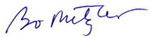 Bo Metzler